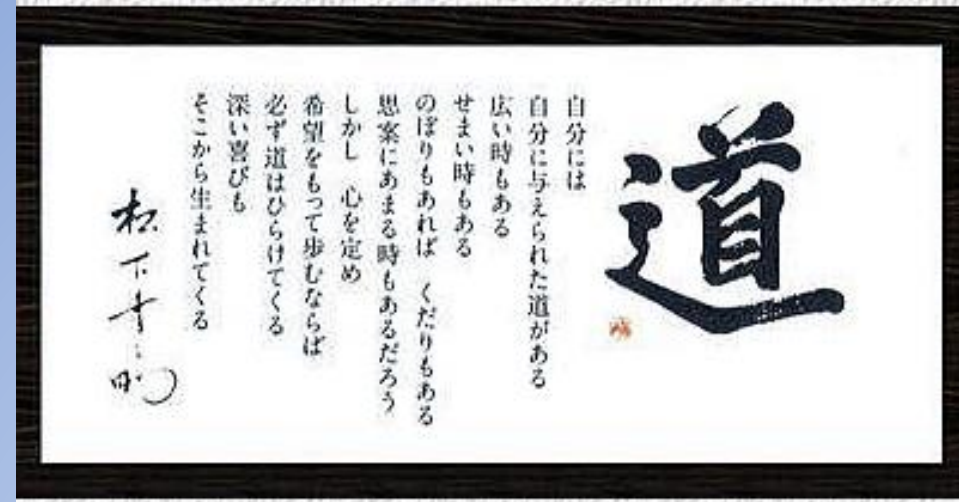 道
自分には
自分に与えられた道がある
広い時もある
せまい時もある
のぼりもあれば くだりもある
思案にあまる時もあるだろう
しかし 心を定め
希望をもって歩むならば
必ず道はひらけてくる
深い喜びも
そこから生まれてくる
松下幸之助